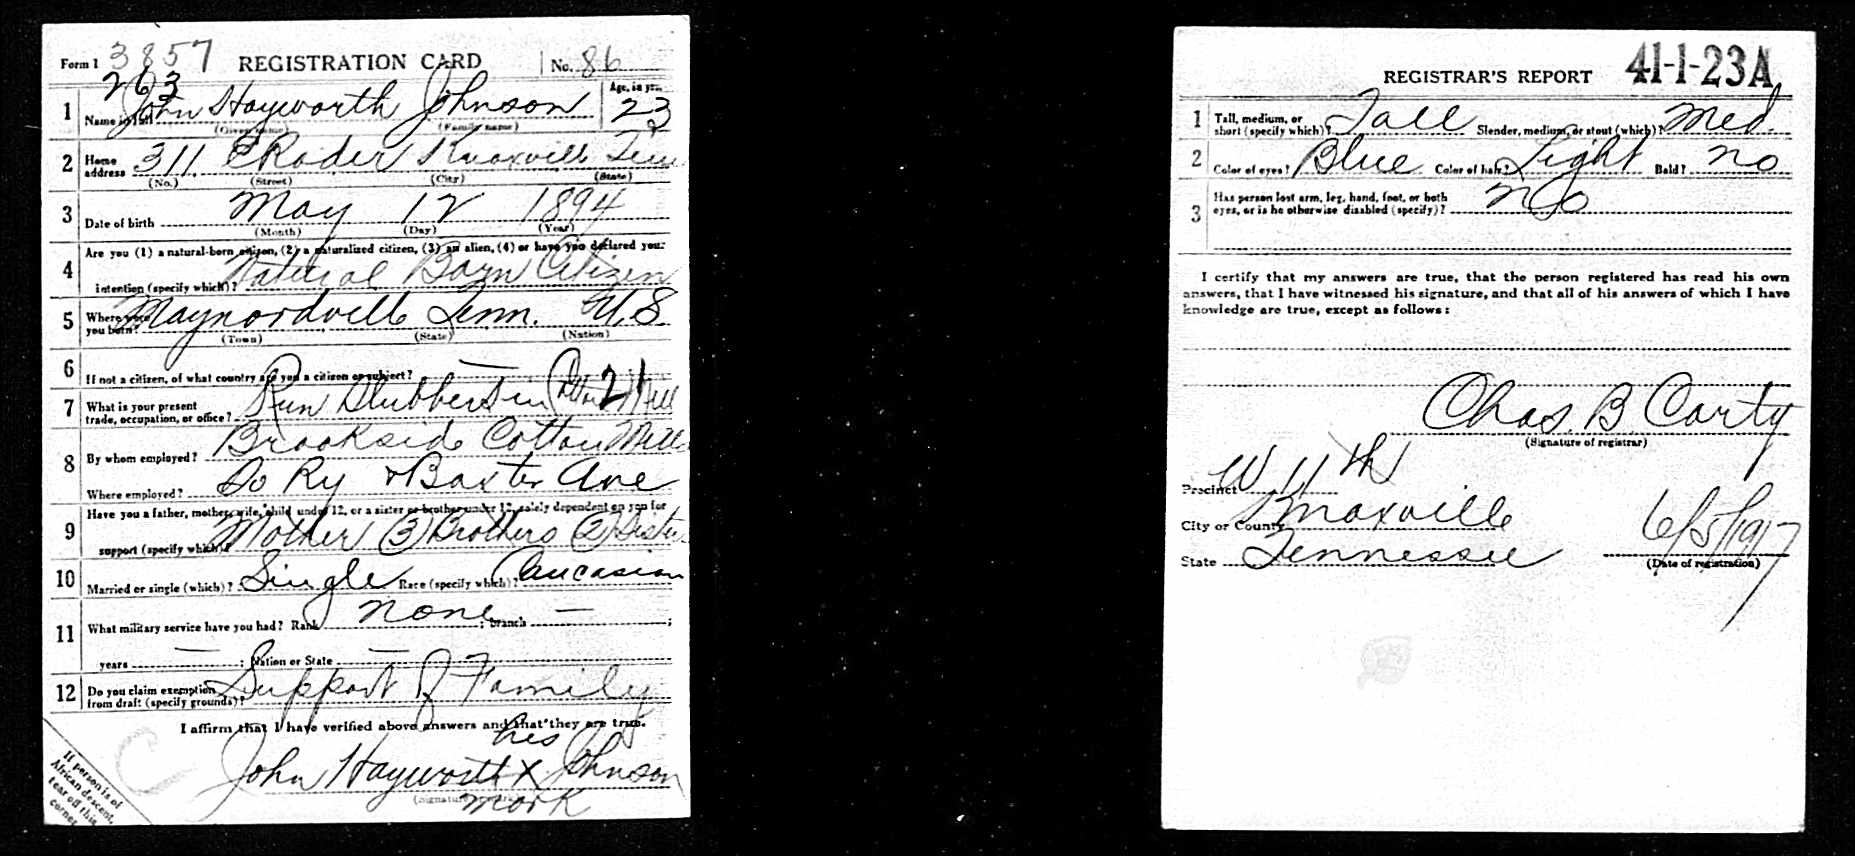 Form 1 3857 REGISTRATION CARD No. 86
263
1 Name in full John Hayworth Johnson Age, in yrs. 23
(Given name) (Family name)
2 Home address 311 E Rader Knoxville Tenn
(No.) (Street) (City) (State)
3 Date of birth May 12 1894
(Month) (Day) (Year)
4 Are you (1) a natural-born citizen, (2) a naturalized citizen, (3) an alien, (4) or have you declared your
intention (specify which)? Natural Born Citizen
5 Where were you born? Maynardville Tenn. U.S.
(Town) (State) (Nation)
6 If not a citizen, of what country are you a citizen or subject? —
7 What is your present trade, occupation, or office? Run Slubbers in Cotton Mill 21
8 By whom employed? Brookside Cotton Mills
Where employed? So Ry & Baxter Ave
9 Have you a father, mother, wife, child under 12, or a sister or brother under 12, solely dependent on you for
support (specify which)? Mother (3) Brothers (2) Sisters
10 Married or single (which)? Single Race (specify which)? Caucasian
11 What military service have you had? Rank None ; branch — ;
years — ; Nation or State —
12 Do you claim exemption from draft (specify grounds)? Support of Family
I affirm that I have verified above answers and that they are true.
his
John Hayworth X Johnson
mark
If person is of
African descent,
tear off this
corner
C
REGISTRAR'S REPORT 41-1-23A
1 Tall, medium, or short (specify which)? Tall Slender, medium, or stout (which)? Med.
2 Color of eyes? Blue Color of hair? Light Bald? no
3 Has person lost arm, leg, hand, foot, or both eyes, or is he otherwise disabled (specify)? No
I certify that my answers are true, that the person registered has read his own
answers, that I have witnessed his signature, and that all of his answers of which I have
knowledge are true, except as follows:
Chas. B. Carty
(Signature of registrar)
Precinct W 11th
City or County Knoxville
State Tennessee 6/5/1917
(Date of registration)